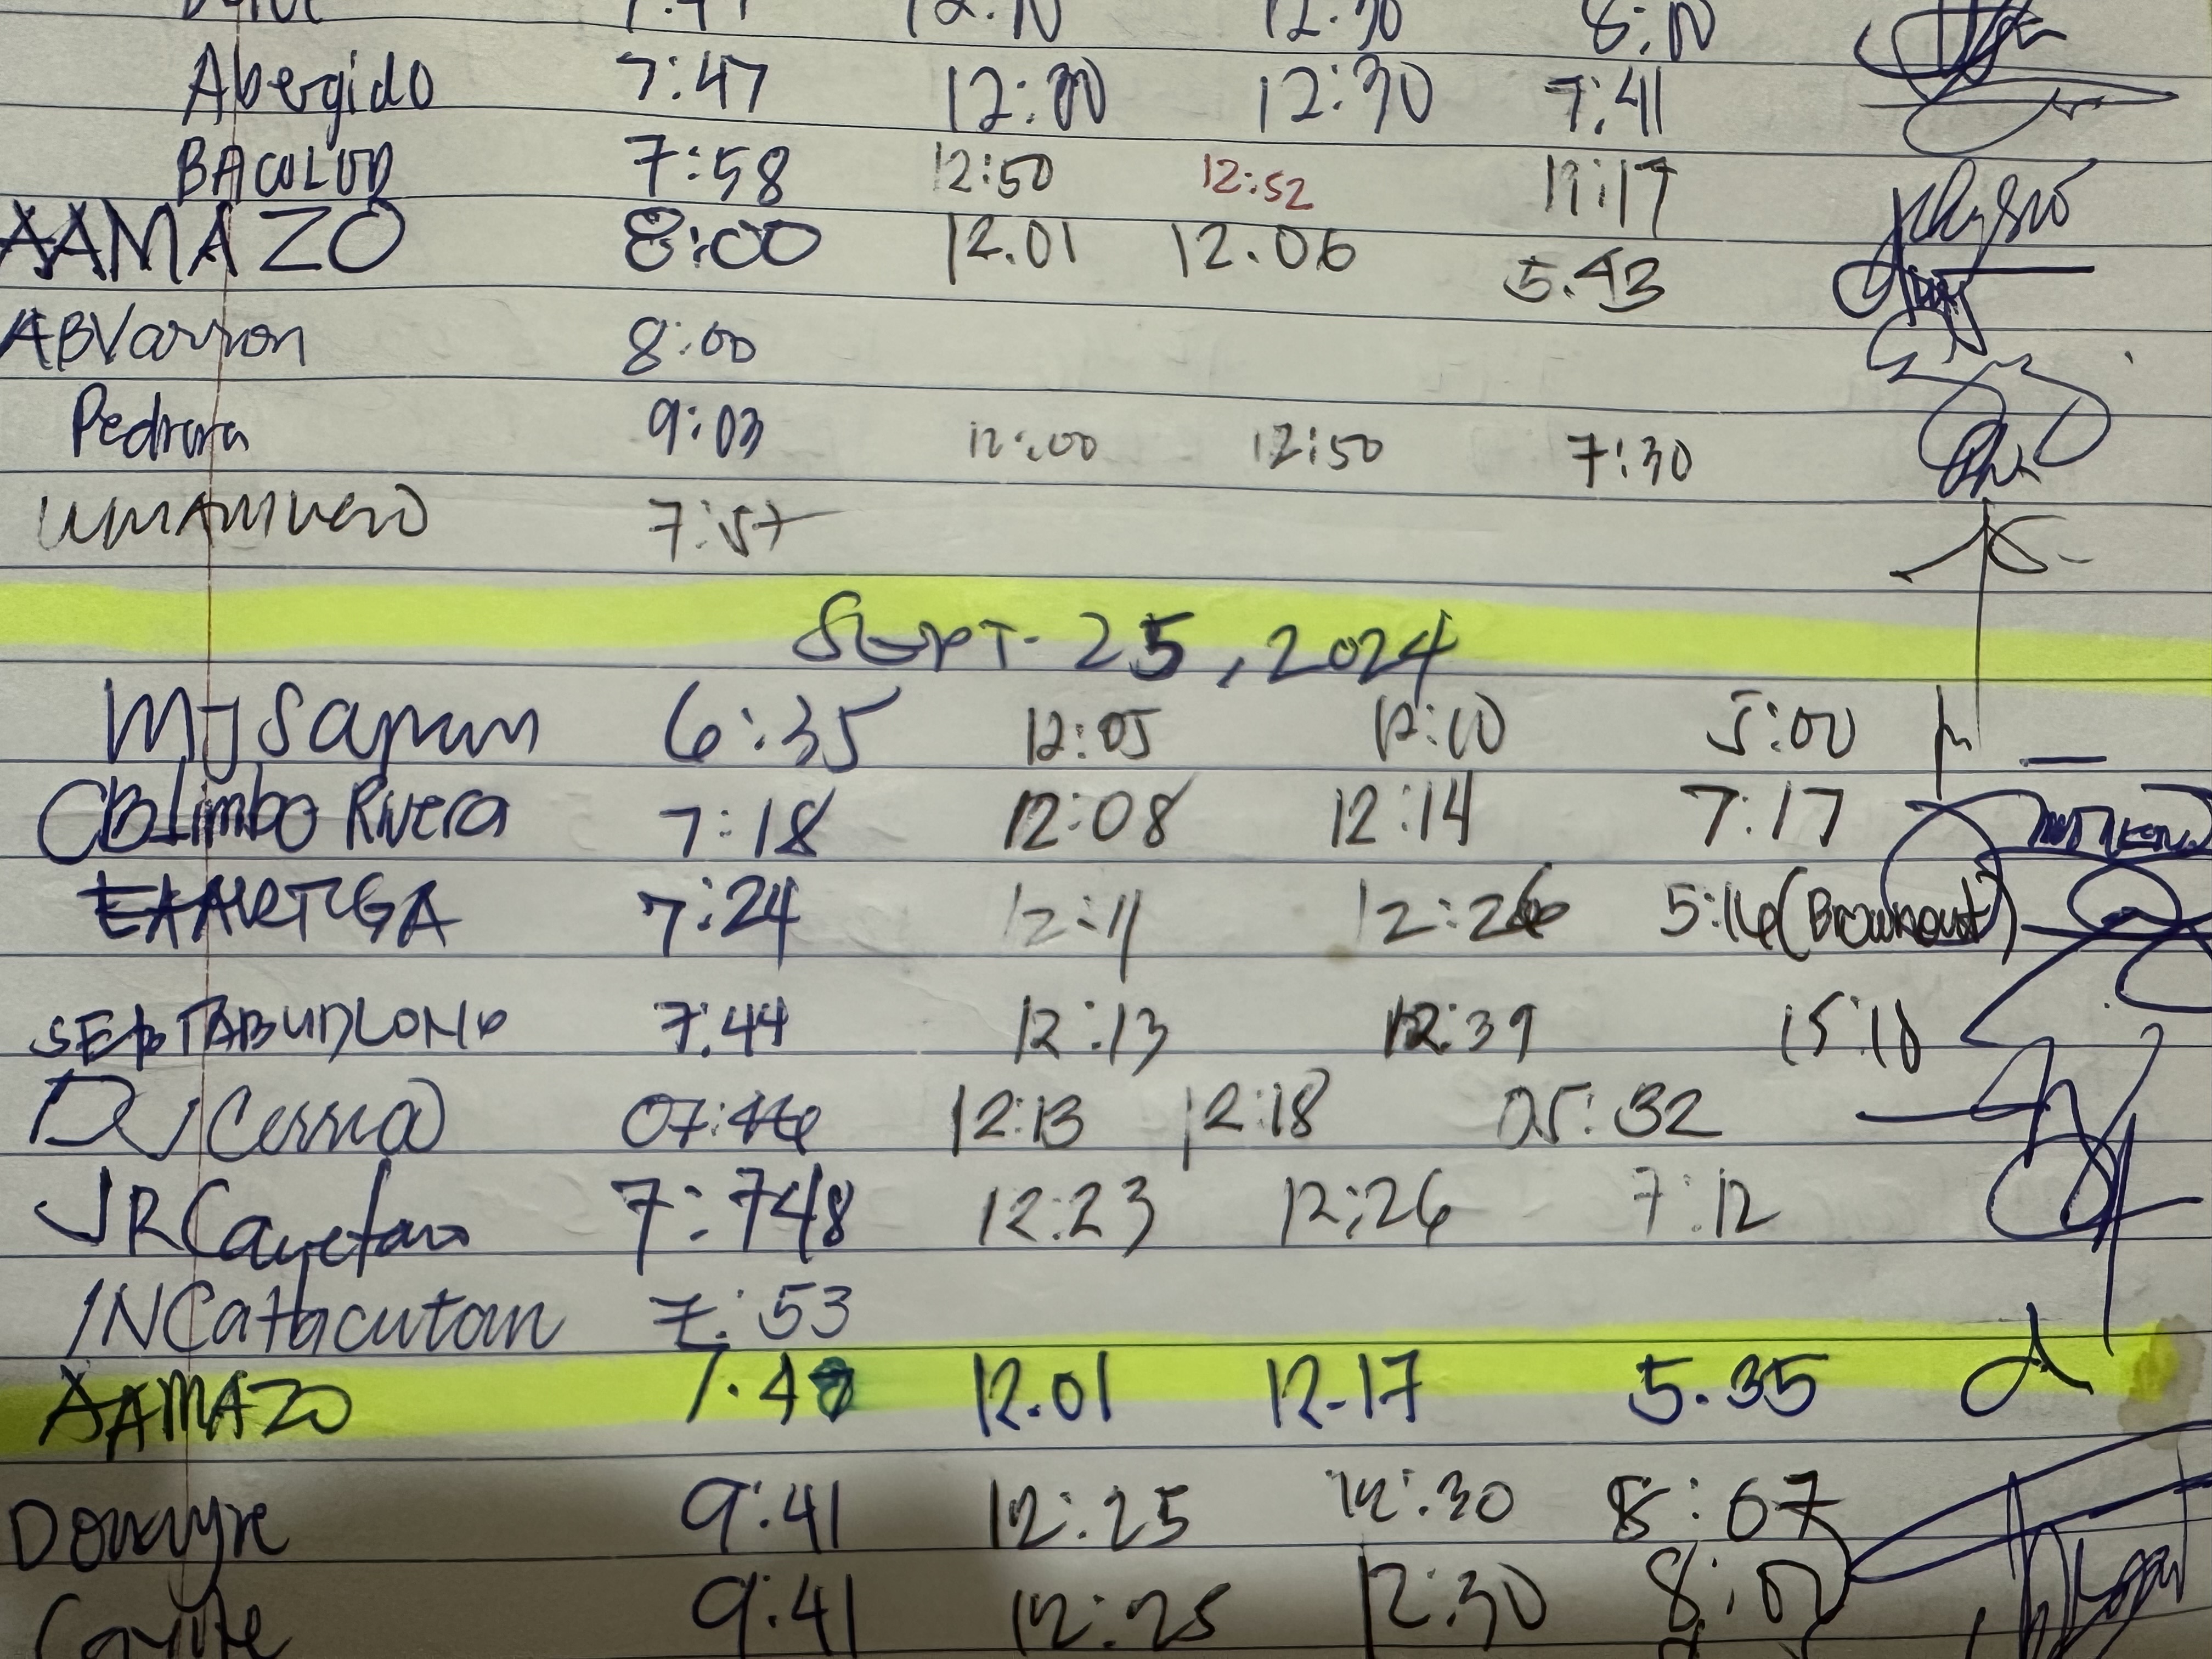 12:10 12:30 8:10
Abergido 7:47 12:00 12:30 7:41
BACOLOD 7:58 12:50 12:52 11:17
AAMAZO 8:00 12.01 12.06 5.43
ABVarron 8:00
9:03 12:00 12:50 7:30
7:57
SEPT. 25, 2024
MJ Sapun 6:35 12:05 12:10 5:00
CBLimbo Rivera 7:18 12:08 12:14 7:17
EAARTUGA 7:24 12:11 12:26 5:16 (Brownout)
TABUDLONG 7:44 12:13 12:39 15:10
07:46 12:13 12:18 05:32
JRCayetano 7:748 12:23 12:26 7:12
INCatacutan 7:53
AAMAZO 12.01 12.17 5.35
9:41 12:25 12:30 8:07
9:41 12:25 12:30